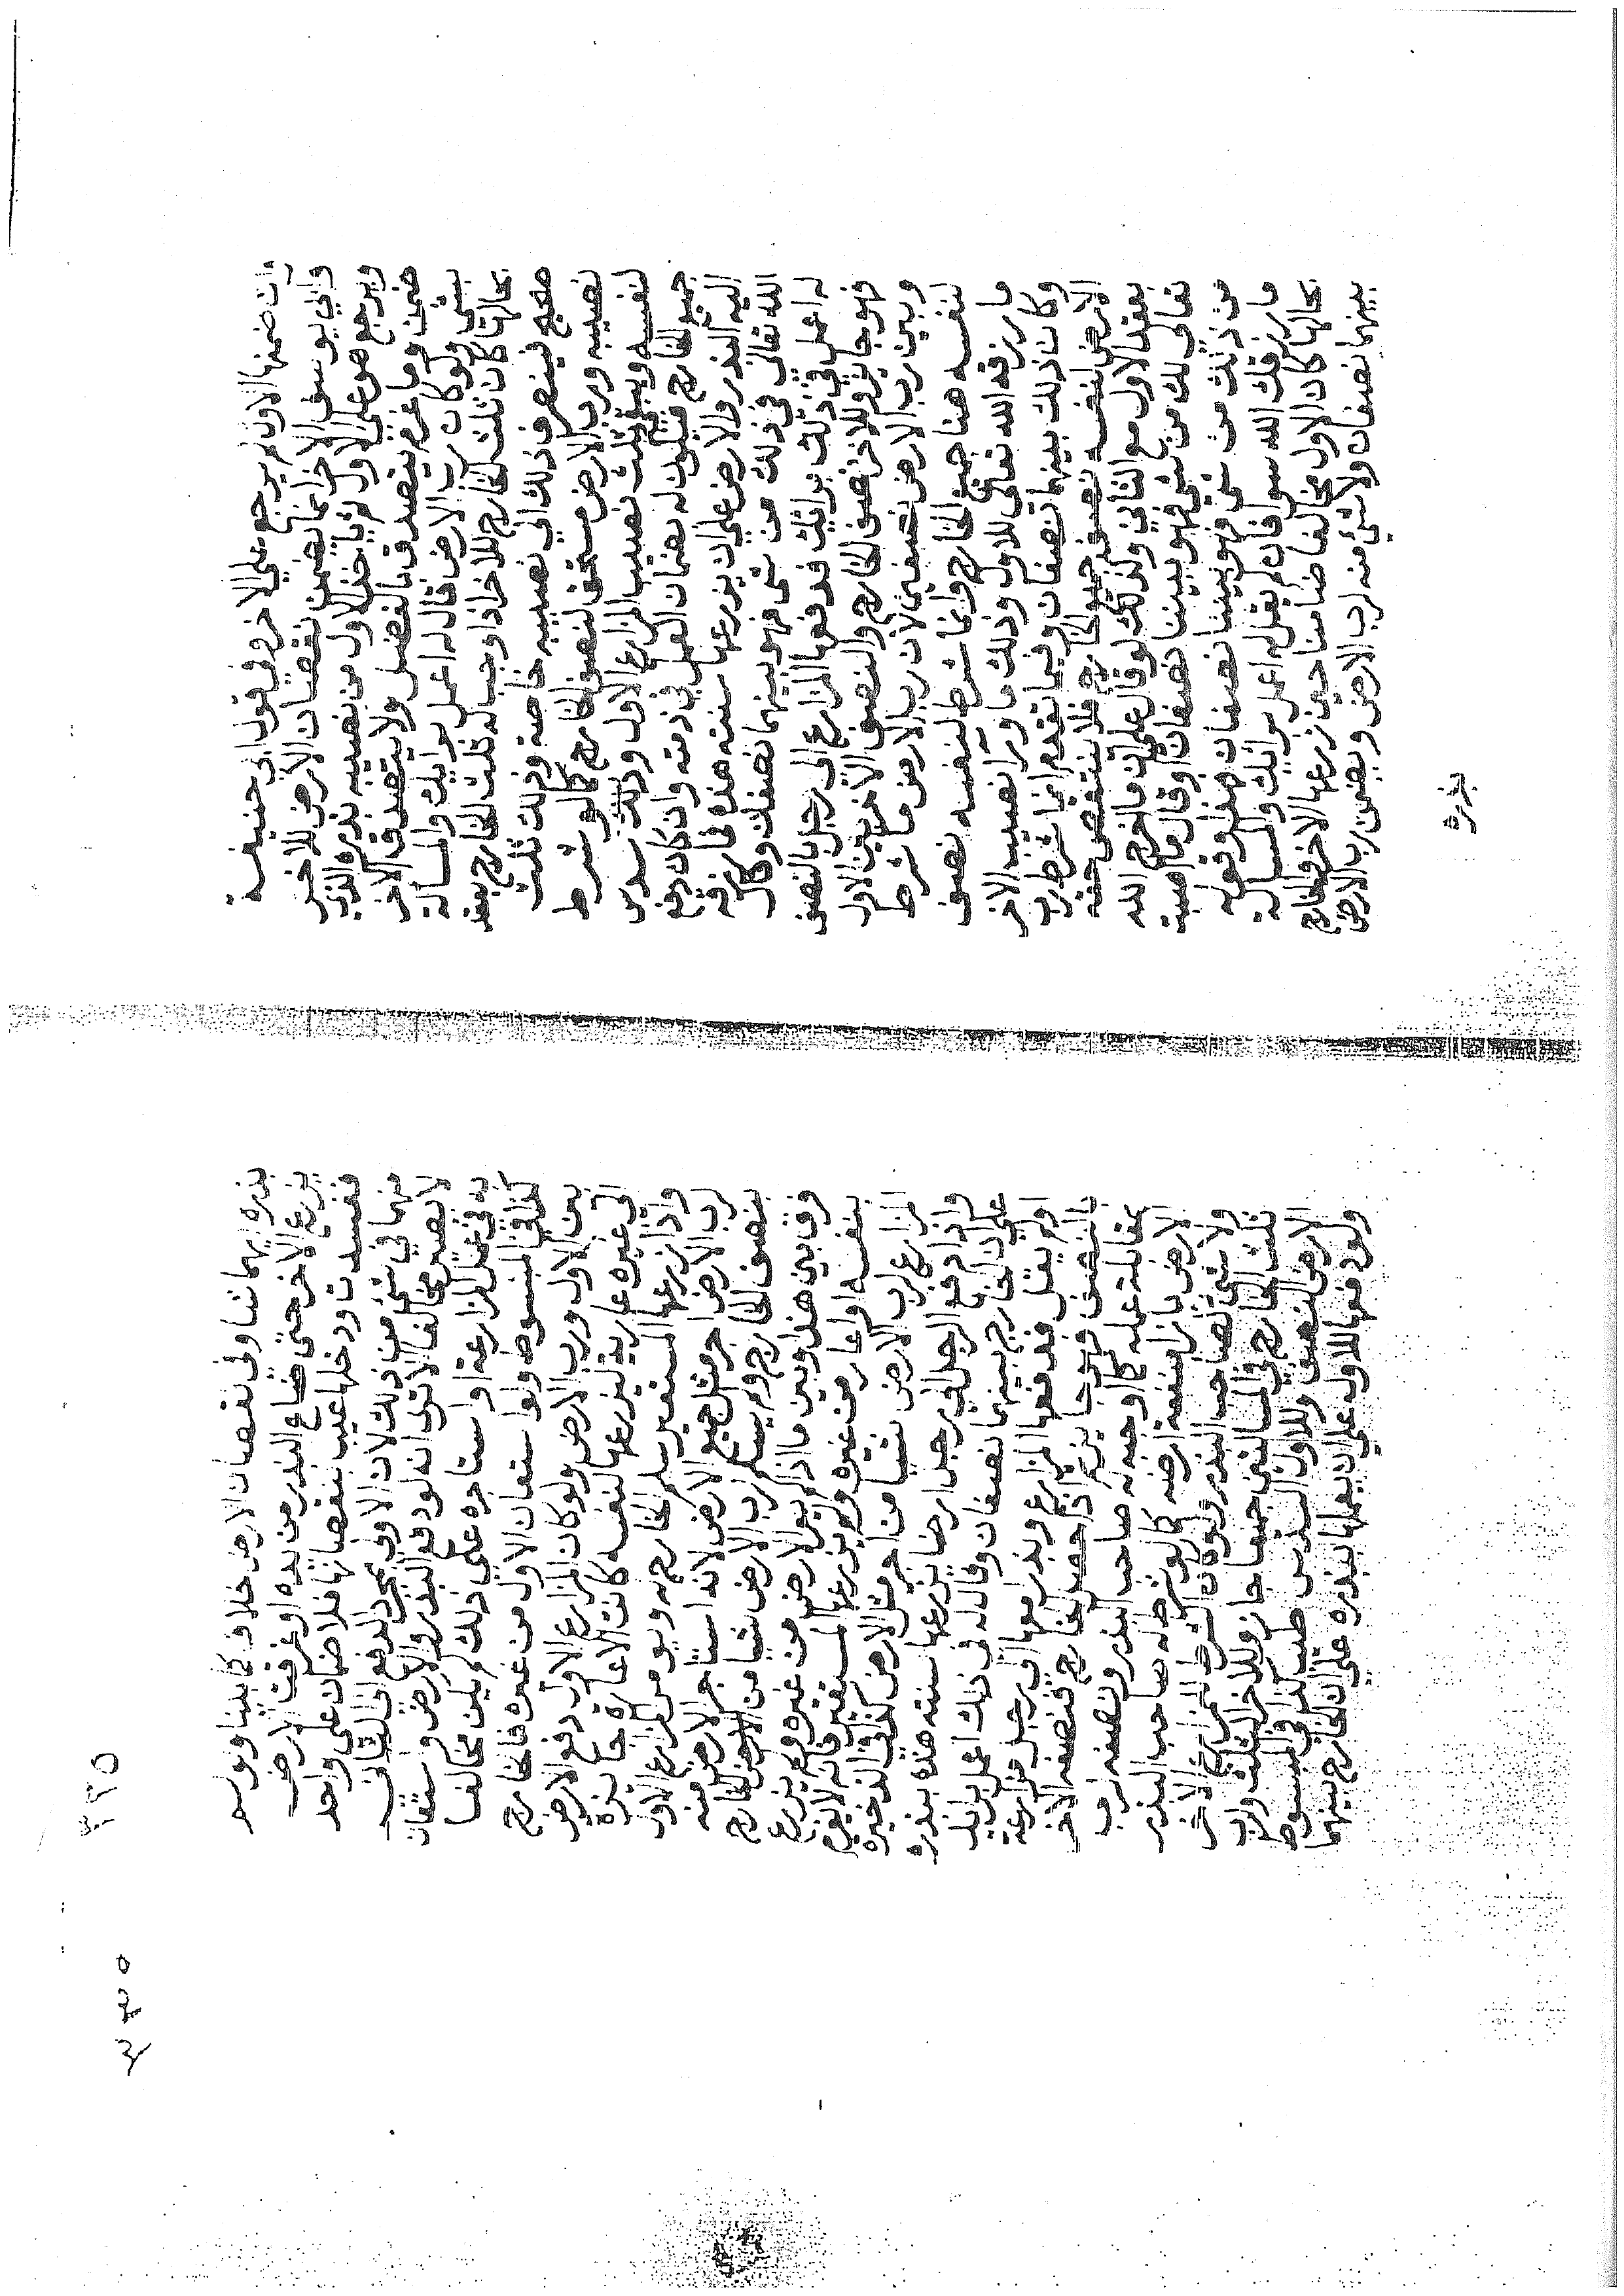 وان ضمنها الاول لم يرجع على الاخر وفي قول ابي حنيفة
وابي يوسف الاخر انما يضمن نقصان الارض للاخر
ويرجع هو على الاول ثم ياخذ الاول من نصيبه بذره الذي
ضمن وما غرم ثم يتصدق بالفضل ولا يتصدق الاخر
بشي ولو كان رب الارض قال له اعمل برايك والمسالة
بحالها كان ثلث الخارج للاخر اذا وجب له ثلث الخارج بعقد
صحيح فينصرف ذلك الى نصيبه خاصة وذلك ثلث
نصيبه ورب الارض مستحق لنصف الخارج كما لو شرط
لنفسه ويبقى ثلث نصيب المزارع الاول وذلك سدس
جميع الخارج فيكون له بضمان العمل في ذمته وان كان دفع
اليه البذر والارض على ان يزرعها سنته هذه فما رزقه
الله تعالى في ذلك من شي فهو بينهما نصفان وقال
له اعمل في ذلك برايك فدفعها المزارع الى رجل بالنصف
فهو جايز وللاخر نصف الخارج والنصف الاخر بين الاول
وبين رب الارض نصفين لان رب الارض ما شرط
لنفسه هنا جميع الخارج وانما شرط لنفسه نصف
ما رزقه الله تعالى للاول وذلك ما ورا نصيب الاخر
وكان ذلك بينهما نصفان وفيما تقدم انما شرط رب
الارض لنفسه نصف جميع الخارج فلا ينتقص حقه
بعقد الاول مع الثاني وكذلك لو قال على ان ما اخرج الله
تعالى لك من شي فهو بيننا نصفان او قال ما اصبت
من ذلك من شي فهو بيننا نصفان هذا وقوله
ما رزقك الله سوا فان لم يقل له اعمل برايك والمسالة
بحالها كان الاول مخالفا ضامنا حين زرعها الاخر والخارج
بينهما نصفان ولا شي منه لرب الارض ويضمن رب الارض
بذره
٣٢٥
بذره ايهما شا وفي نقصان الارض خلاف كما بينا ولو لم
يزرع الاخر حتى ضاع البذر من يده او غرقت الارض
ففسدت ودخلها عيب ينقصانها فلا ضمان على واحد
منهما في شي من ذلك لان الاول بمجرد الدفع الى الثاني
لا يصير مخالفا الا ترى انه لو دفع البذر والارض واستعان
به في عمل المزارعة او استاجره على ذلك لم يكن مخالفا
كذا في المبسوط ولو استعان الاول من غيره فالخارج
بين الاول ورب الارض ولو كان المزارع الاول دفع الارض
الى غيره عارية ليزرعها لنفسه كانت الاعارة جايزة
واذا زرعها المستعير سلم الخارج له المزارع الاول
لرب الارض اجر مثل جميع الارض لانه استاجر الارض منه
بنصف الخارج ولم يسلم لرب الارض شيا من الخارج
فرق بين هذا وبين ما اذا لم يعر الارض من غيره ولم يزرع
بنفسه او اعار من غيره ولم يزرعها المستعير فانه لا يغرم
المزارع لرب الارض شيا من اجر مثل الارض كذا في الذخيرة
واذا دفع الرجل الى رجل ارضا يزرعها سنته هذه ببذره
على ان الخارج بينهما نصفان وقال له في ذلك اعمل برايك
او لم يقل فدفعها المزارع وبذر معها الى رجل مزارعة
بالنصف فهو جايز ثم اذا حصل الخارج فنصفه للاخر
بمقابلة عمله كما اوجبه له صاحب البذر ونصفه لرب
الارض بازا منفعة ارضه كما لو شرط له صاحب البذر
ولا شي لصاحب البذر ولو كان الشرط للمزارع الاخر
ثلث الخارج في المسالتين جميعا جاز وللاخر الثلث ولرب
الارض النصف وللاول السدس طيب كذا في المبسوط
ولو دفعها للاول على ان يعملها ببذره على ان الخارج بينهما